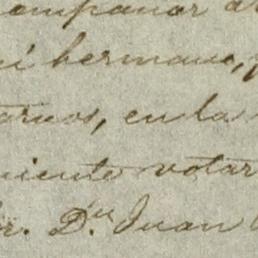 ompañar a
mi hermano,
tarnos, en la
niente votar
r. D.n Juan